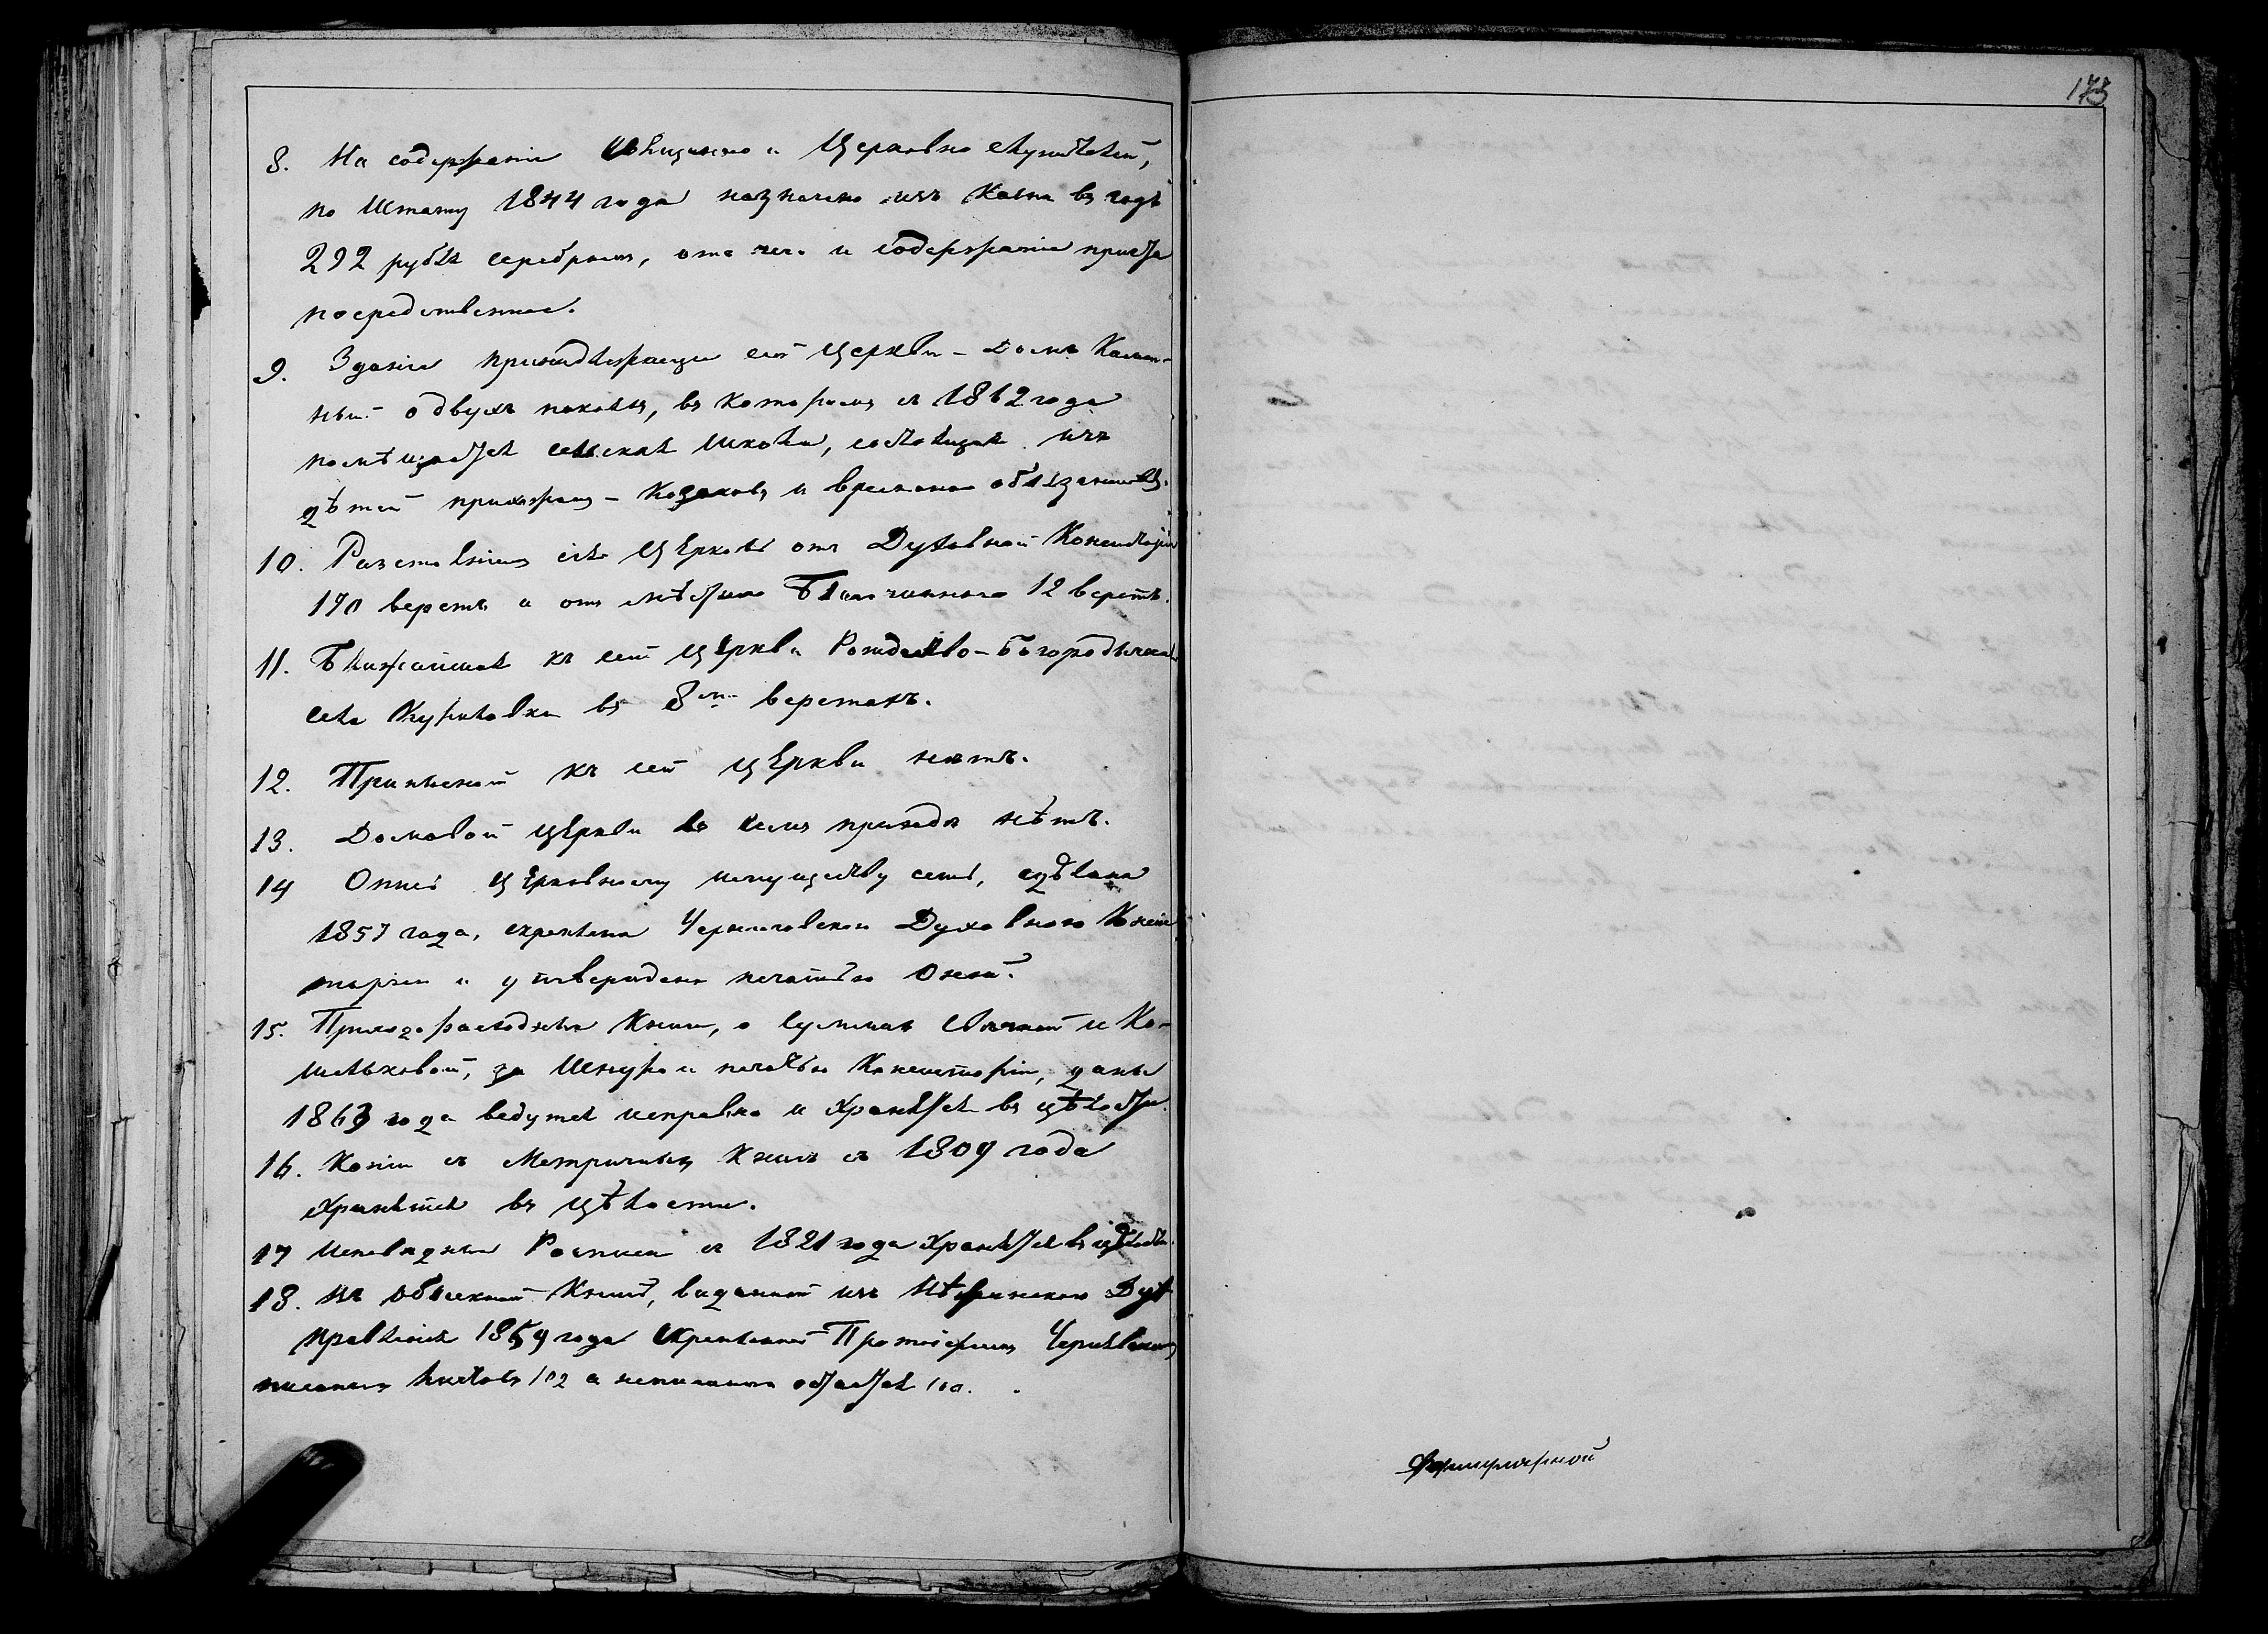 173
8. На содержаніе Священно и Церковно служителей,
по Штату 1844 года назначено изъ Казны въ годъ
292 рубля серебромъ, отъ чего и содержаніе причта
посредственное.
9. Зданіе принадлежащее сей церкви – Домъ Камен-
ный о двухъ покояхъ, въ которомъ съ 1862 года
помѣщается сельская школа, состоящая изъ
дѣтей прихожанъ – Козаковъ и временно обязанныхъ.
10. Разстояніемъ сія Церковь отъ Духовной Консисторіи
170 верстъ и отъ мѣстнаго Благочиннаго 12 верстъ.
11. Ближайшая къ сей церкви Рождество-Богородичная
села в 8ми верстахъ.
12. Приписной къ сей церкви нѣтъ.
13. Домовой церкви въ семъ приходѣ нѣтъ.
14 Опись церковному имуществу сему, сдѣлана
1857 года, скрѣплена Черниговскою Духовною Консис
торіею и утверждена печатью оной.
15. Приходо расходныя Книги, о суммах Свѣчной и Ко-
шельковой, за Шнуромъ и печатью Консисторіи, даны
1863 года ведутся исправно и хранятся въ цѣлости.
16. Копіи съ Метричныхъ Книгъ съ 1809 года
хранятся въ цѣлости.
17 Исповѣдныя Росписи съ 1821 года хранятся въ цѣлости.
18. Въ обыскной Книгѣ, выданной изъ Нѣжинскаго Дух
правленія 1859 года скрѣпленной Протоіереемъ
писанныхъ листовъ 102 а неписанныхъ остается 100.